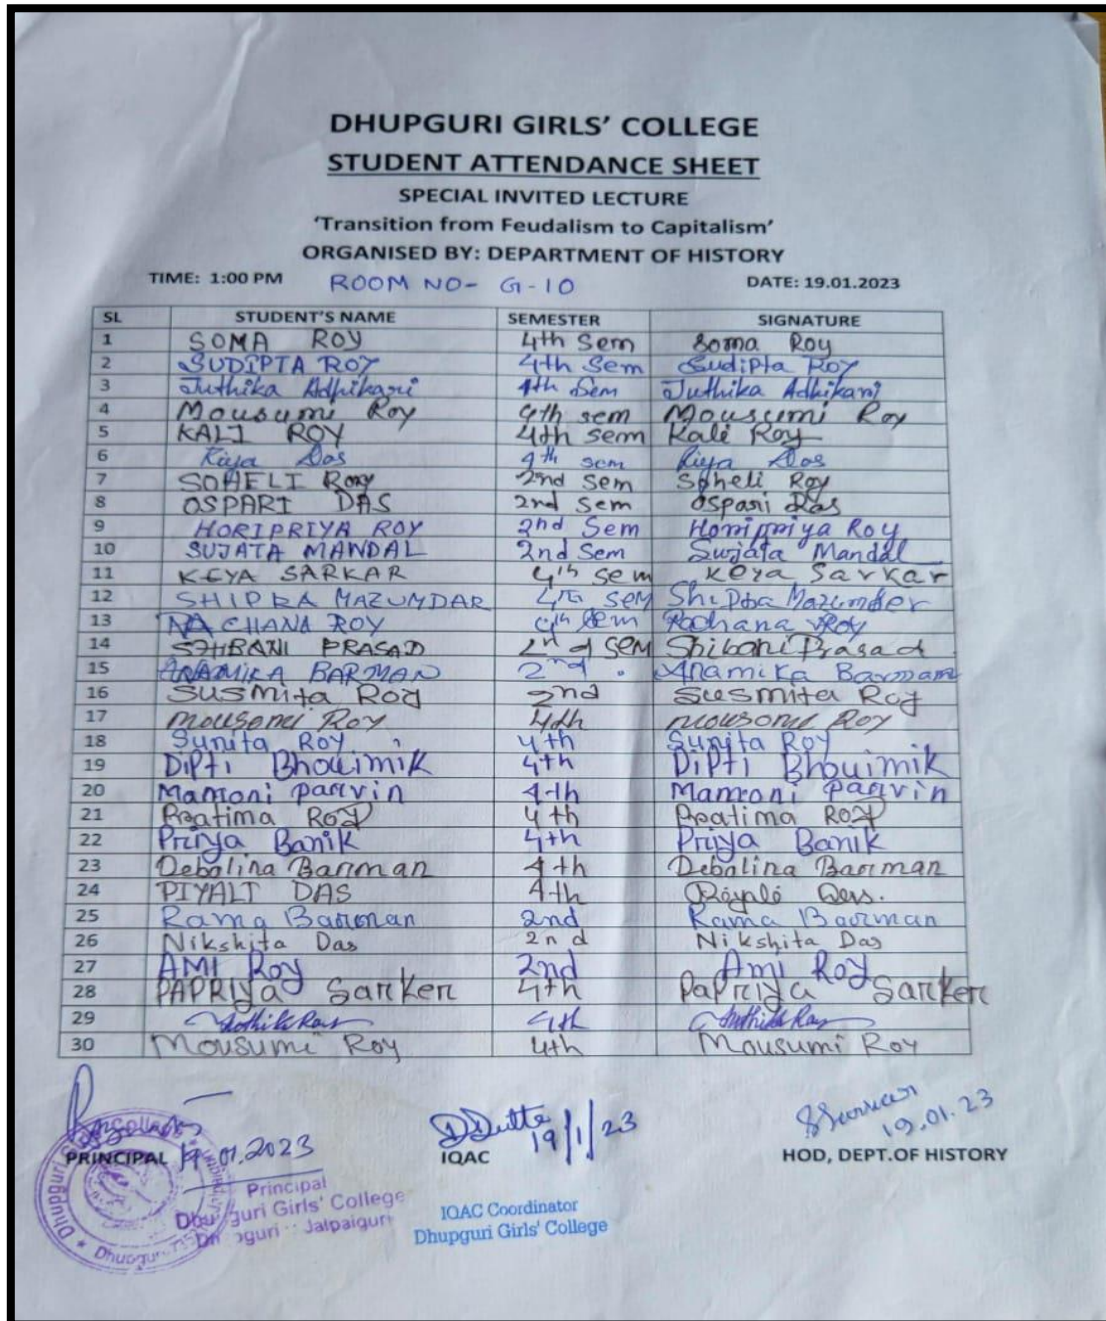 DHUPGURI GIRLS' COLLEGE
STUDENT ATTENDANCE SHEET
SPECIAL INVITED LECTURE
'Transition from Feudalism to Capitalism'
ORGANISED BY: DEPARTMENT OF HISTORY
TIME: 1:00 PM ROOM NO- G-10 DATE: 19.01.2023
SL STUDENT'S NAME SEMESTER SIGNATURE
1 SOMA ROY 4th Sem Soma Roy
2 SUDIPTA ROY 4th Sem Sudipta Roy
3 Juthika Adhikari 4th Sem Juthika Adhikari
4 Mousumi Roy 4th sem Mousumi Roy
5 KALI ROY 4th sem Kali Roy
6 Riya Das 4th sem Riya Das
7 SOHELI Roy 2nd Sem Soheli Roy
8 OSPARI DAS 2nd Sem Ospari Das
9 HORIPRIYA ROY 2nd Sem Horipriya Roy
10 SUJATA MANDAL 2nd Sem Sujata Mandal
11 KEYA SARKAR 4th sem Keya Sarkar
12 SHIPRA MAZUMDAR 4th sem Shipra Mazumder
13 RACHANA ROY 4th Sem Rachana Roy
14 SHIBANI PRASAD 2nd SEM Shibani Prasad
15 ANAMIKA BARMAN 2nd . Anamika Barman
16 Susmita Roy 2nd Susmita Roy
17 mousomi Roy 4th mousomi Roy
18 Sunita Roy 4th Sunita Roy
19 Dipti Bhouimik 4th Dipti Bhouimik
20 Mamoni parvin 4th Mamoni parvin
21 Pratima Roy 4th Pratima Roy
22 Priya Banik 4th Priya Banik
23 Debalina Barman 4th Debalina Barman
24 PIYALI DAS 4th Piyali Das.
25 Rama Barman 2nd Rama Barman
26 Nikshita Das 2nd Nikshita Das
27 AMI Roy 2nd Ami Roy
28 PAPRIYA Sarker 4th Papriya Sarker
29 Juthika Roy 4th Juthika Roy
30 Mousumi Roy 4th Mousumi Roy
DDutta 19/1/23
SSarkar 19.01.23
PRINCIPAL 19.01.2023 IQAC HOD, DEPT.OF HISTORY
Principal
Dhupguri Girls' College
Dhupguri :: Jalpaiguri
IQAC Coordinator
Dhupguri Girls' College